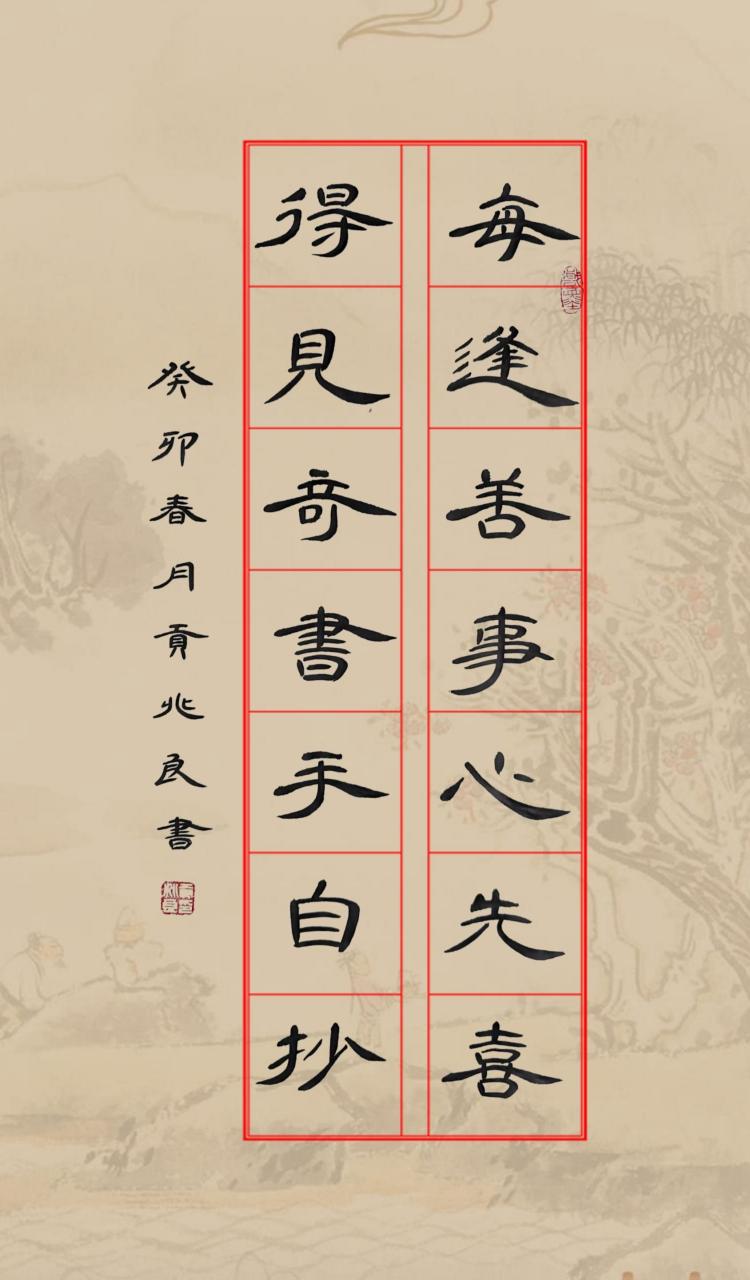 每逢善事心先喜
得見奇書手自抄
癸卯春月貢兆良書